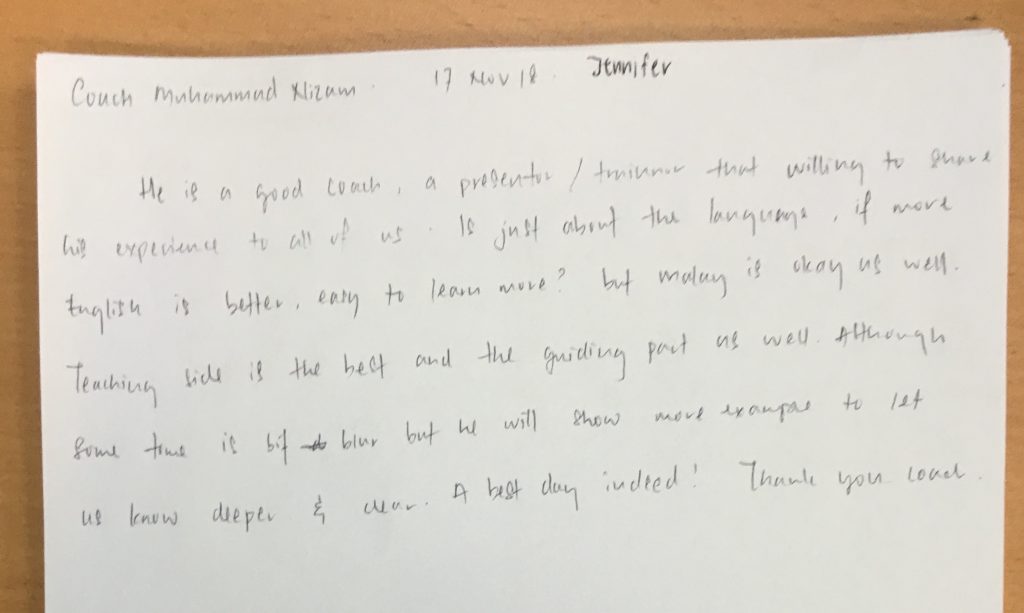 Coach Muhammad Nizam. 17 Nov 18. Jennifer
He is a good coach, a presentor / trainnor that willing to share
his experience to all of us. Is just about the language, if more
English is better, easy to learn more? but malay is okay as well.
Teaching side is the best and the guiding part as well. Although
some time is bit blur but he will show more exampae to let
us know deeper & clear. A best day indeed! Thank you coach.